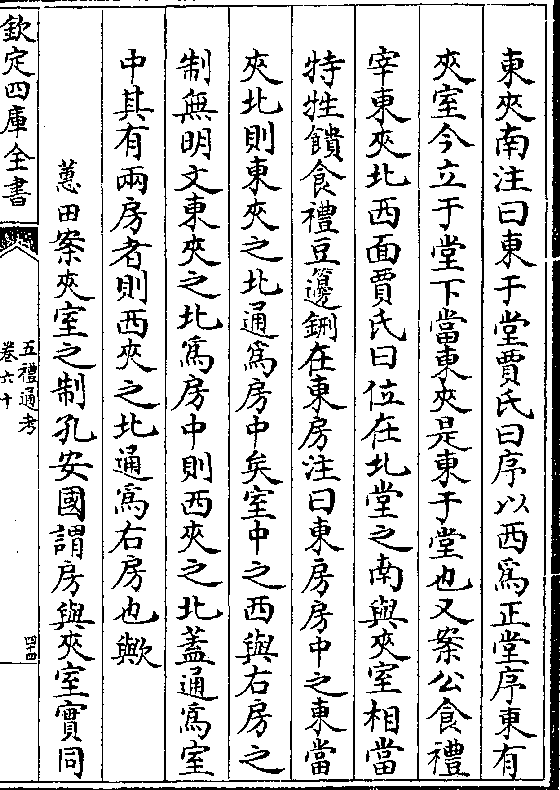 東夾南注曰東于堂賈氏曰序以西爲正堂序東有
夾室今立于堂下當東夾是東于堂也又案公食禮
宰東夾北西面賈氏曰位在北堂之南與夾室相當
特牲饋食禮豆籩鉶在東房注曰東房房中之東當
夾北則東夾之北通爲房中矣室中之西與右房之
制無明文東夾之北爲房中則西夾之北蓋通爲室
中其有兩房者則西夾之北通爲右房也歟
蕙田案夾室之制孔安國謂房與夾室實同
欽定四庫全書
五禮通考
卷六十
四十四